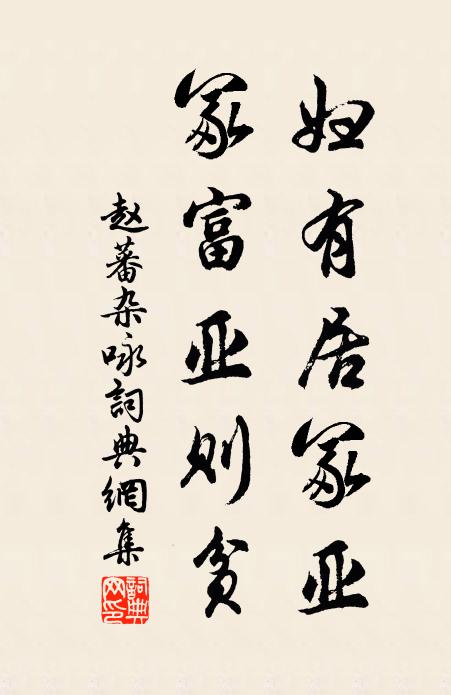 妇有居冢亚
冢富亚则贫
赵蕃杂咏詞典網集
詞典网印